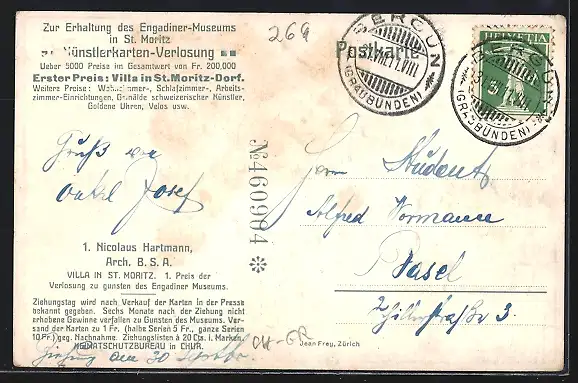 Zur Erhaltung des Engadiner-Museums
in St. Moritz
Künstlerkarten-Verlosung
Ueber 5000 Preise im Gesamtwert von Fr. 200,000
Erster Preis: Villa in St. Moritz-Dorf.
Weitere Preise: Wohnzimmer-, Schlafzimmer-, Arbeits-
zimmer-Einrichtungen, Gemälde schweizerischer Künstler,
Goldene Uhren, Velos usw.
Gruß von
Onkel Josef
1. Nicolaus Hartmann,
Arch. B. S. A.
VILLA IN ST. MORITZ. 1. Preis der
Verlosung zu gunsten des Engadiner Museums.
Ziehungstag wird nach Verkauf der Karten in der Presse
bekannt gegeben. Sechs Monate nach der Ziehung nicht
erhobene Gewinne verfallen zu Gunsten des Museums. Ver-
sand der Karten zu 1 Fr. (halbe Serien 5 Fr., ganze Serien
10 Fr.) geg. Nachnahme. Ziehungslisten à 20 Cts. i. Marken.
HEIMATSCHUTZBUREAU in CHUR.
Ziehung am 30
№460904 ✻
269
Postkarte
BERGÜN
(GRAUBÜNDEN)
HELVETIA
BERGÜN
(GRAUBÜNDEN)
Herrn Student
Alfred
Basel
3.
CH-GR
Jean Frey, Zürich